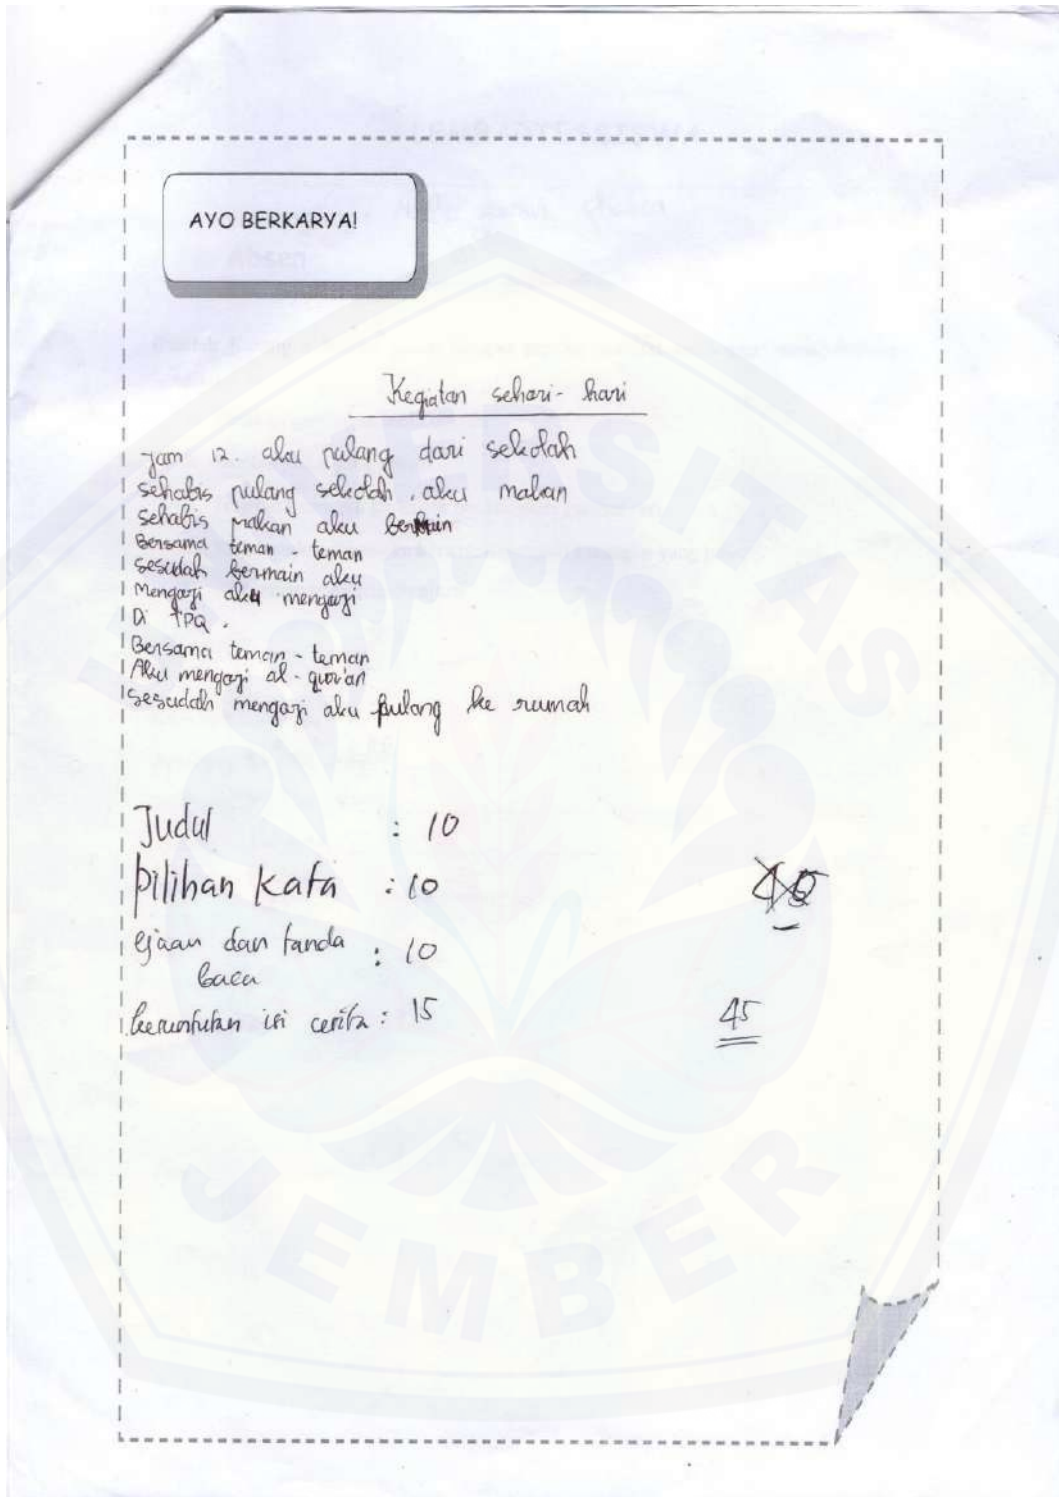 AYO BERKARYA!
Kegiatan sehari-hari
Jam 12. aku pulang dari sekolah
sehabis pulang sekolah. aku makan
sehabis makan aku bermain
Bersama teman - teman
sesudah bermain aku
Mengaji aku mengaji
Di TPQ.
Bersama teman - teman
Aku mengaji al-qur'an
Sesudah mengaji aku pulang ke rumah
Judul : 10
pilihan kata : 10
ejaan dan tanda : 10
baca
keruntutan isi cerita : 15
45
UNIVERSITAS
JEMBER